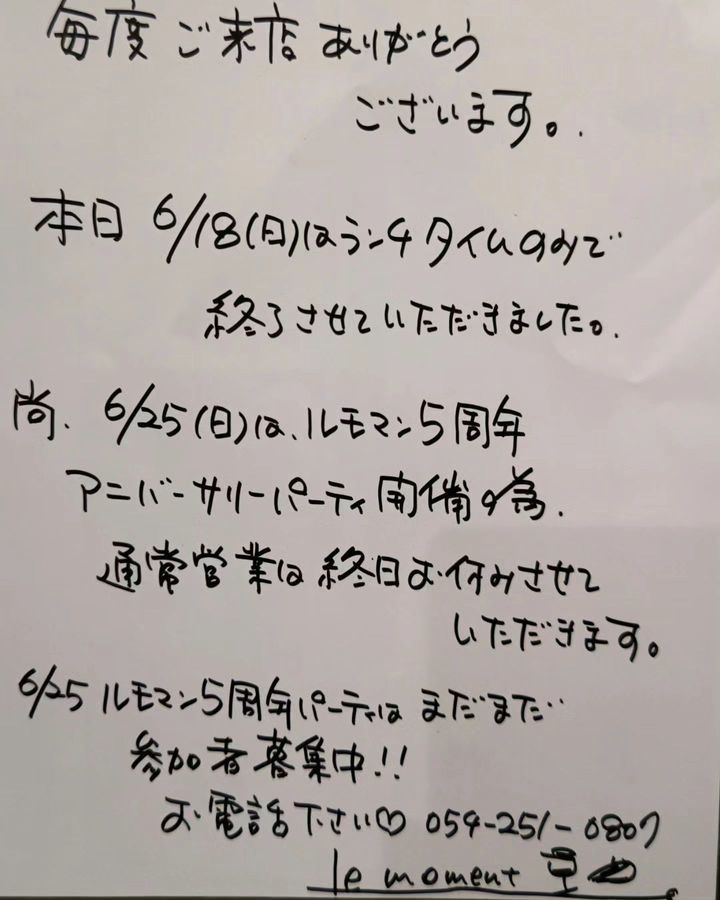 毎度ご来店ありがとう
ございます。
本日 6/18(日)はランチタイムのみで
終了させていただきました。
尚、6/25(日)は、ルモマン5周年
アニバーサリーパーティ開催の為、
通常営業は終日お休みさせて
いただきます。
6/25 ルモマン5周年パーティは まだまだ
参加者募集中!!
お電話下さい♡ 054-251-0807
le moment